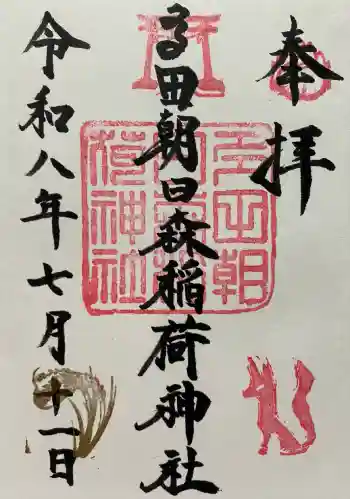 奉拝
多田朝日森稲荷神社
多田朝
日森稲
荷神社
令和八年七月十一日